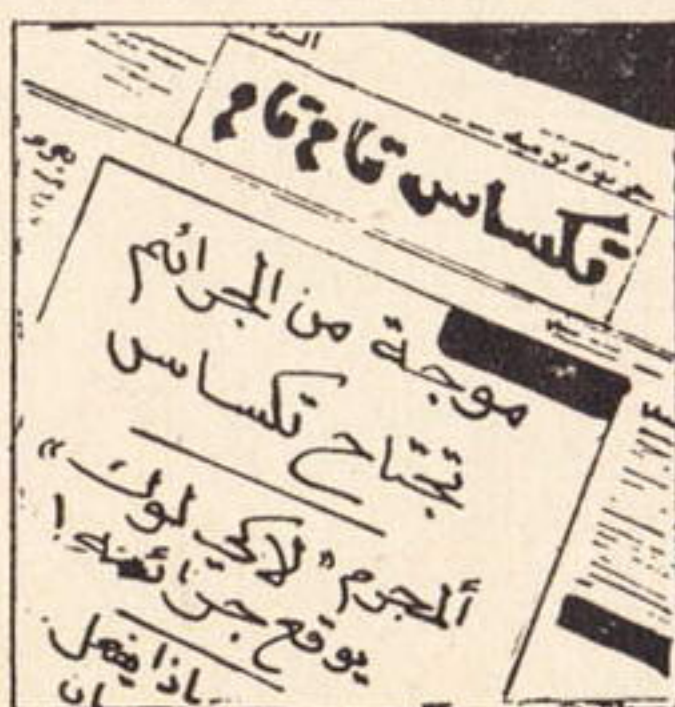 تكساس تايمز
موجة من الجرائم
تجتاح تكساس
ألمجرم "لاكي لوك"
يوقع جرائمه!
ماذا يفعل